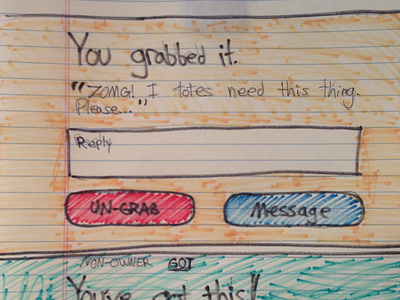 You grabbed it.
"ZOMG! I totes need this thing.
Please..."
Reply
UN-GRAB
Message
NON-OWNER GOT
You've got this!